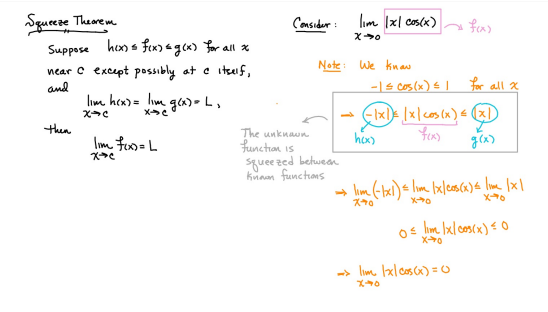 Squeeze Theorem
Suppose h(x) ≤ f(x) ≤ g(x) for all x
near c except possibly at c itself,
and
lim h(x) = lim g(x) = L,
x→c x→c
then
lim f(x) = L
x→c
Consider: lim |x| cos(x) → f(x)
x→0
Note: We know
-1 ≤ cos(x) ≤ 1 for all x
⇒ -|x| ≤ |x| cos(x) ≤ |x|
h(x) f(x) g(x)
The unknown
function is
squeezed between
known functions
⇒ lim (-|x|) ≤ lim |x| cos(x) ≤ lim |x|
x→0 x→0 x→0
0 ≤ lim |x| cos(x) ≤ 0
x→0
⇒ lim |x| cos(x) = 0
x→0